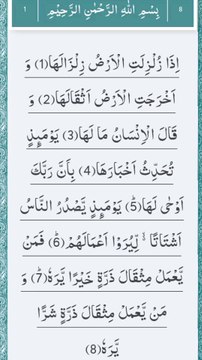 1 بِسْمِ اللّٰهِ الرَّحْمٰنِ الرَّحِيْمِ 8
اِذَا زُلْزِلَتِ الْاَرْضُ زِلْزَالَهَا(1) وَ
اَخْرَجَتِ الْاَرْضُ اَثْقَالَهَا(2) وَ
قَالَ الْاِنْسَانُ مَا لَهَا(3) یَوْمَىٕذٍ
تُحَدِّثُ اَخْبَارَهَا(4) بِاَنَّ رَبَّكَ
اَوْحٰى لَهَا(5) یَوْمَىٕذٍ یَّصْدُرُ النَّاسُ
اَشْتَاتًا ﳔ لِّیُرَوْا اَعْمَالَهُمْ(6) فَمَنْ
یَّعْمَلْ مِثْقَالَ ذَرَّةٍ خَیْرًا یَّرَهٗ(7) وَ
مَنْ یَّعْمَلْ مِثْقَالَ ذَرَّةٍ شَرًّا
یَّرَهٗ(8)